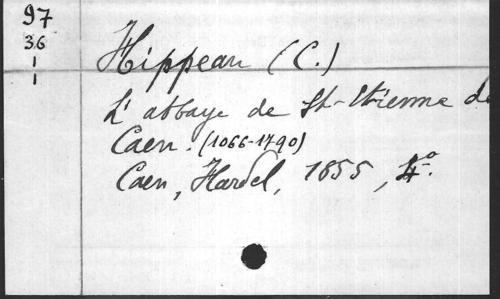 97
36
Hippeau (C.)
L'abbaye de St-Etienne de
Caen. (1066-1790)
Caen, Hardel, 1855, 4°.